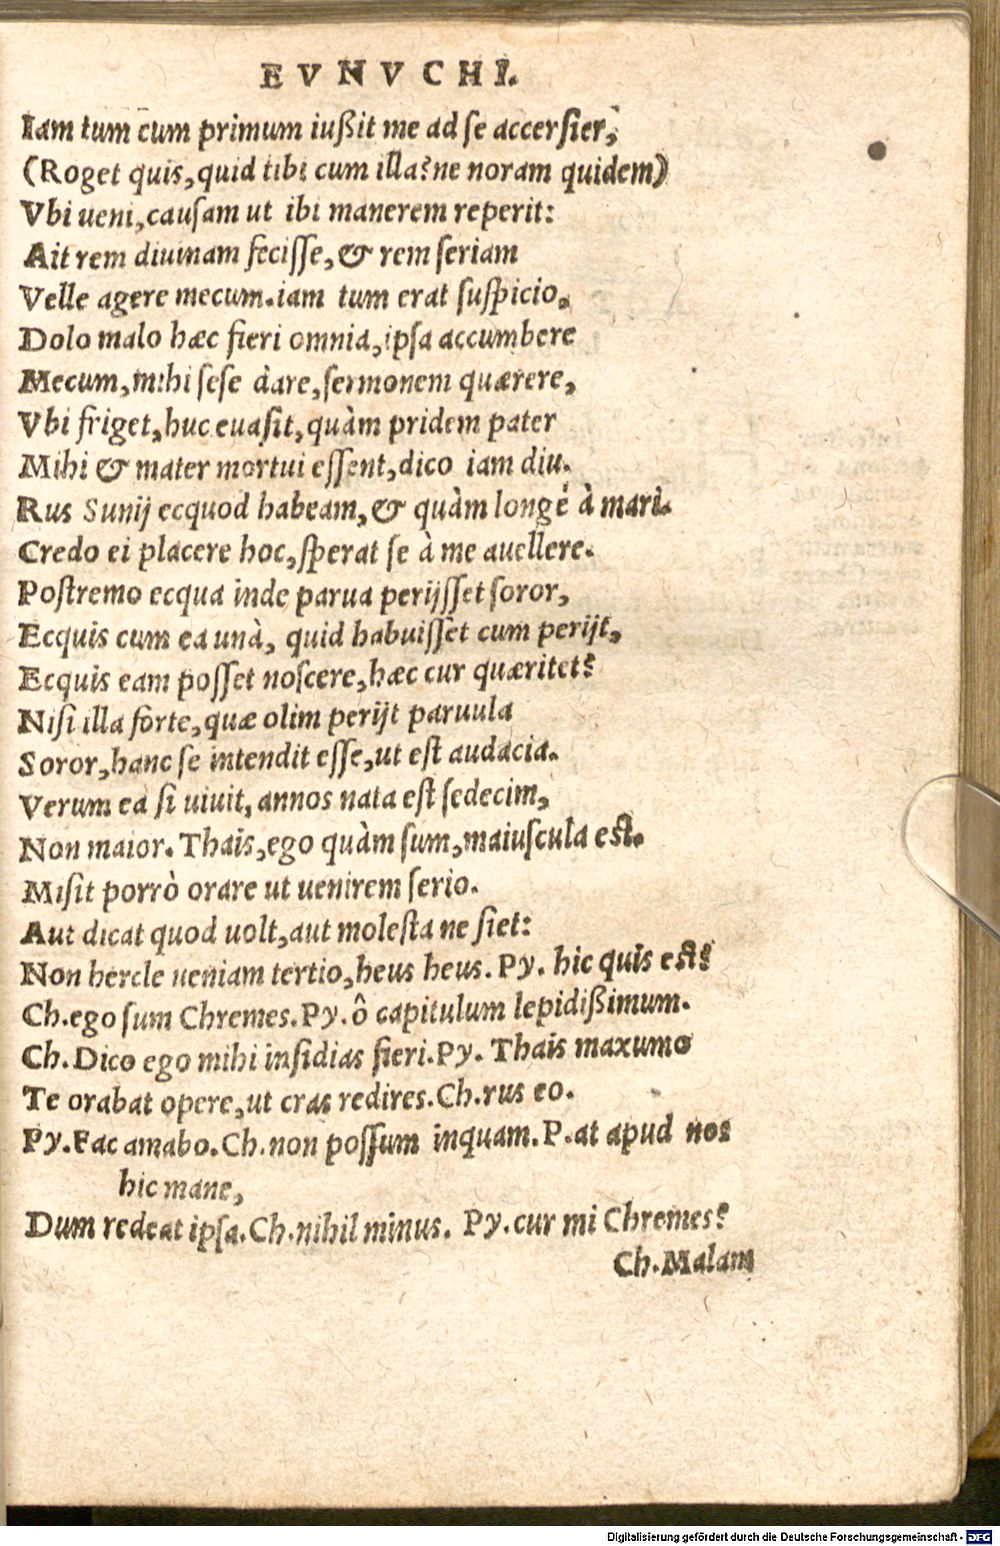 EVNVCHI.
Iam tum cum primum iußit me ad se accersier,
(Roget quis, quid tibi cum illa? ne noram quidem)
Vbi ueni, causam ut ibi manerem reperit:
Ait rem diuinam fecisse, & rem seriam
Velle agere mecum. iam tum erat suspicio,
Dolo malo hæc fieri omnia, ipsa accumbere
Mecum, mihi sese dare, sermonem quærere,
Vbi friget, huc euasit, quàm pridem pater
Mihi & mater mortui essent, dico iam diu.
Rus Sunij ecquod habeam, & quàm longè à mari.
Credo ei placere hoc, sperat se à me auellere.
Postremo ecqua inde parua perijsset soror,
Ecquis cum ea unà, quid habuisset cum perijt,
Ecquis eam posset noscere, hæc cur quæritet?
Nisi illa forte, quæ olim perijt paruula
Soror, hanc se intendit esse, ut est audacia.
Verum ea si uiuit, annos nata est sedecim,
Non maior. Thais, ego quàm sum, maiuscula est.
Misit porrò orare ut uenirem serio.
Aut dicat quod uolt, aut molesta ne siet:
Non hercle ueniam tertio, heus heus. Py. hic quis est?
Ch. ego sum Chremes. Py. ô capitulum lepidißimum.
Ch. Dico ego mihi insidias fieri. Py. Thais maxumo
Te orabat opere, ut cras redires. Ch. rus eo.
Py. Fac amabo. Ch. non possum inquam. P. at apud nos
hic mane,
Dum redeat ipsa. Ch. nihil minus. Py. cur mi Chremes?
Ch. Malam
Digitalisierung gefördert durch die Deutsche Forschungsgemeinschaft - DFG